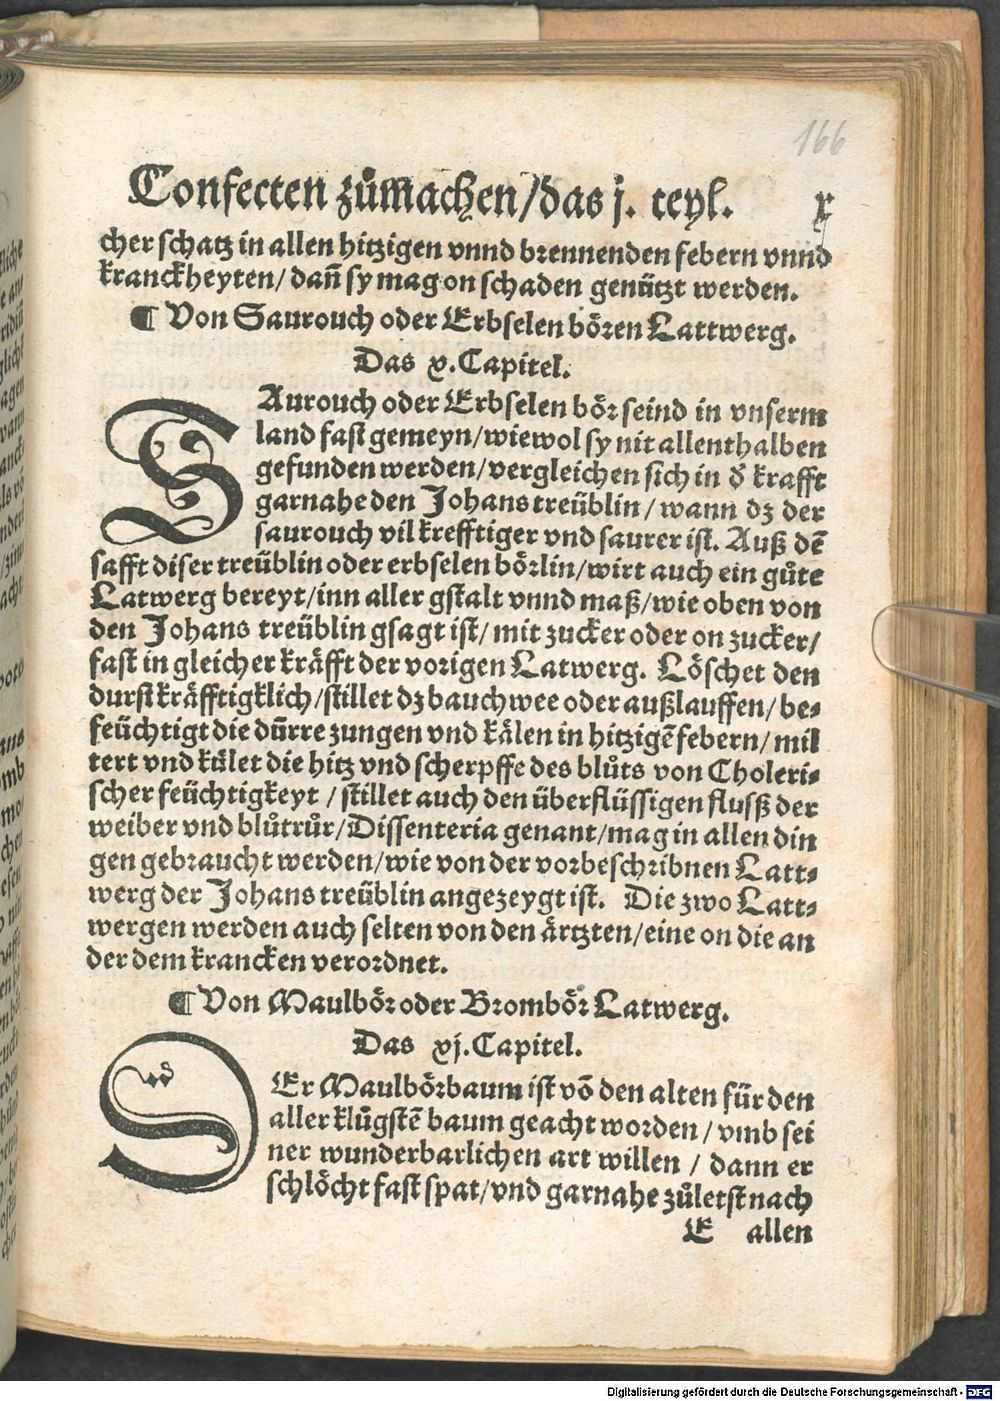 166
Confecten zůmachen/das j. teyl. x
cher schatz in allen hitzigen vnnd brennenden febern vnnd
kranckheyten/ dañ sy mag on schaden genützt werden.
¶ Von Saurouch oder Erbselen bören Lattwerg.
Das x. Capitel.
SAurouch oder Erbselen bör seind in vnserm
land fast gemeyn/wiewol sy nit allenthalben
gefunden werden/vergleichen sich in d̕ krafft
garnahe den Johans treüblin/ wann dz der
saurouch vil krefftiger vnd saurer ist. Auß dē
safft diser treüblin oder erbselen börlin/wirt auch ein gůte
Latwerg bereyt/inn aller gstalt vnnd maß/wie oben von
den Johans treüblin gsagt ist/ mit zucker oder on zucker/
fast in gleicher kräfft der vorigen Latwerg. Löschet den
durst kräfftigklich/stillet dz bauchwee oder außlauffen/ be⸗
feüchtigt die dürre zungen vnd kälen in hitzigē febern/ mil
tert vnd kület die hitz vnd scherpffe des blůts von Choleri⸗
scher feüchtigkeyt / stillet auch den überflüssigen flusß der
weiber vnd blůtrůr/Dissenteria genant/mag in allen din
gen gebraucht werden/wie von der vorbeschribnen Latt⸗
werg der Johans treüblin angezeygt ist. Die zwo Latt⸗
wergen werden auch selten von den ärtzten/eine on die an
der dem krancken verordnet.
¶ Von Maulbör oder Brombör Latwerg.
Das xj. Capitel.
DEr Maulbörbaum ist vō den alten für den
aller klügstē baum geacht worden / vmb sei
ner wunderbarlichen art willen / dann er
schlöcht fast spat/vnd garnahe zůletst nach
E allen
Digitalisierung gefördert durch die Deutsche Forschungsgemeinschaft - DFG